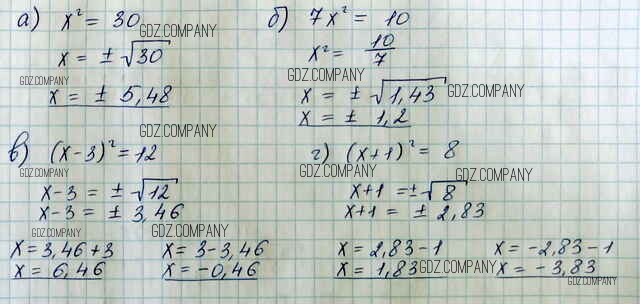 а) x² = 30
GDZ.COMPANY
x = ± √30
GDZ.COMPANY
x = ± 5,48
б) 7x² = 10
x² = 10/7
GDZ.COMPANY
x = ± √1,43
GDZ.COMPANY
x = ± 1,2
GDZ.COMPANY
в) (x-3)² = 12
GDZ.COMPANY
x-3 = ± √12
x-3 = ± 3,46
GDZ.COMPANY
GDZ.COMPANY
x = 3,46+3
x = 6,46
x = 3-3,46
x = -0,46
г) (x+1)² = 8
GDZ.COMPANY
GDZ.COMPANY
x+1 = ± √8
x+1 = ± 2,83
x = 2,83-1
x = 1,83
GDZ.COMPANY
x = -2,83-1
x = -3,83
GDZ.COMPANY